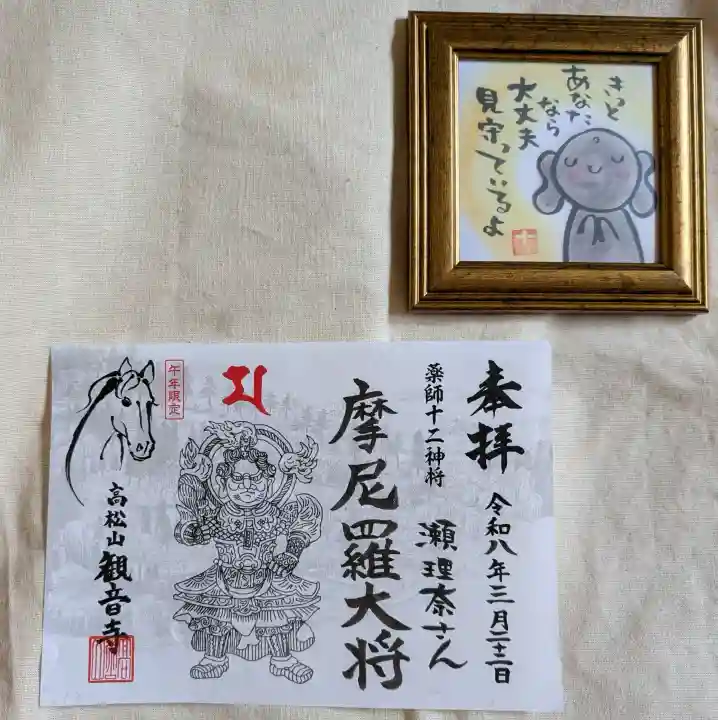 きっと
あなたなら
大丈夫
見守っているよ
奉拝
令和八年三月二十二日
薬師十二神将
瀬理奈さん
摩尼羅大将
午年限定
高松山
観音寺